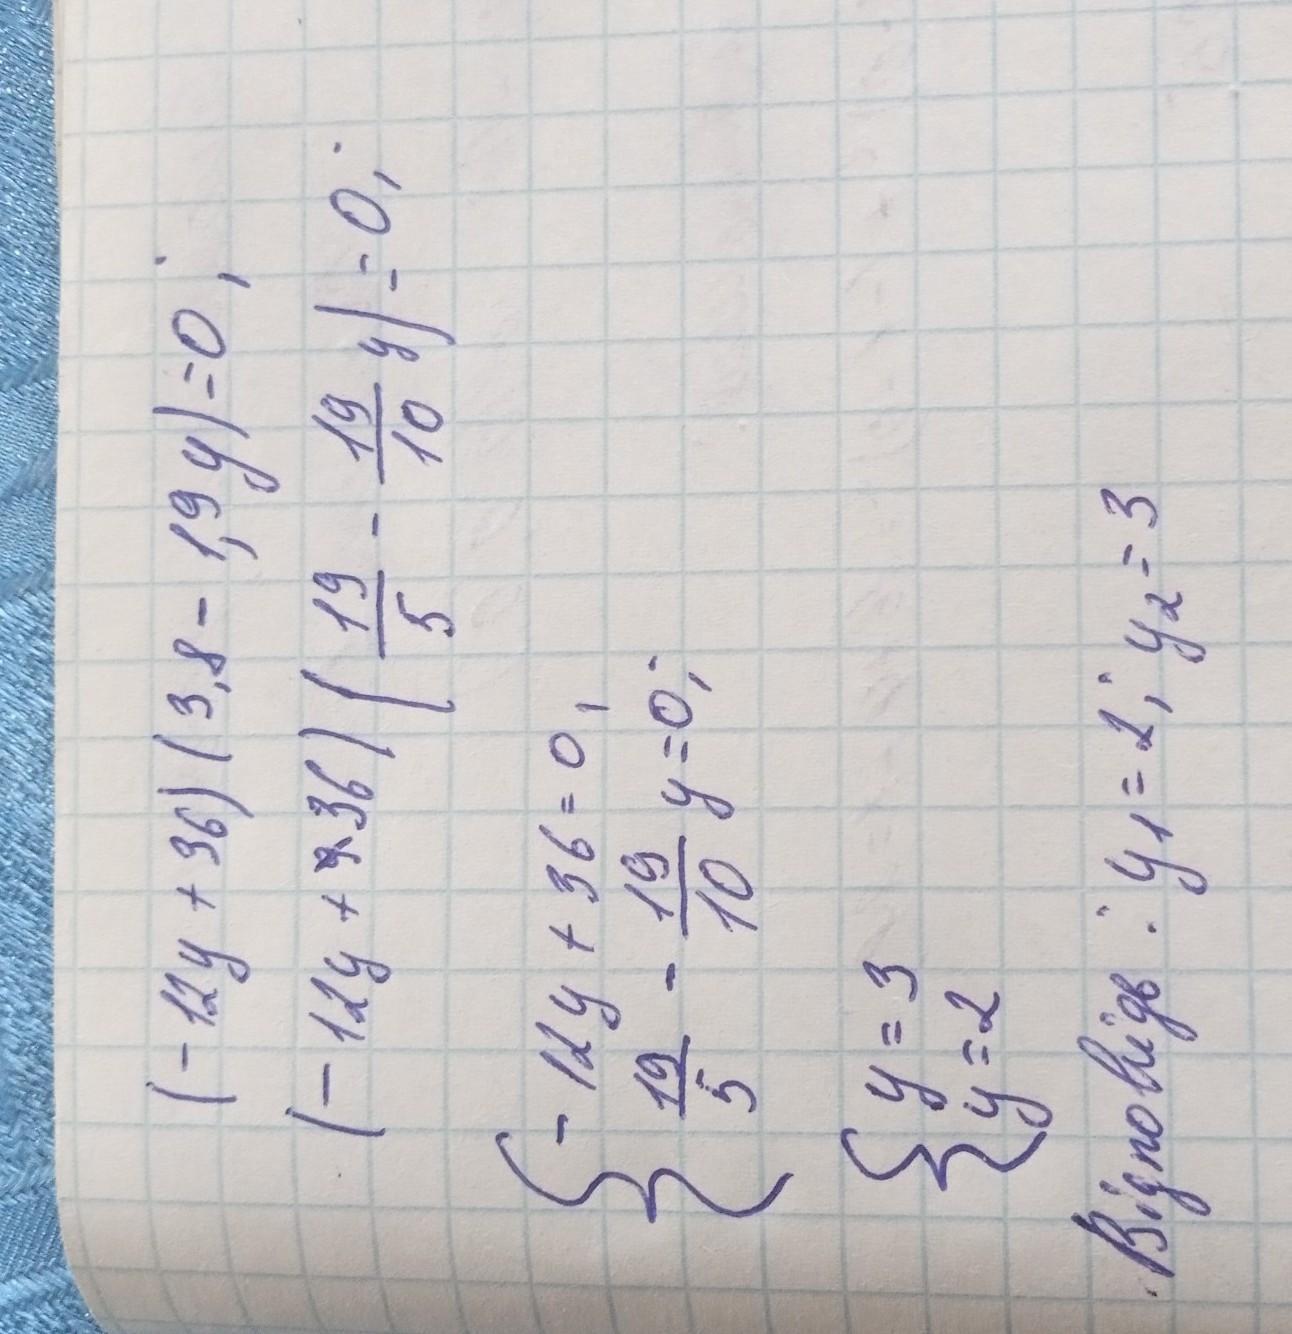 (-12y + 36)(3,8 - 1,9y) = 0;
(-12y + 36)(19/5 - 19/10 y) = 0;
{ -12y + 36 = 0,
19/5 - 19/10 y = 0;
{ y = 3
y = 2
Відповідь: y₁ = 2; y₂ = 3